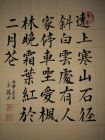 遠上寒山石徑
斜白雲處有人
家停車坐愛楓
林晚霜葉紅於
二月花